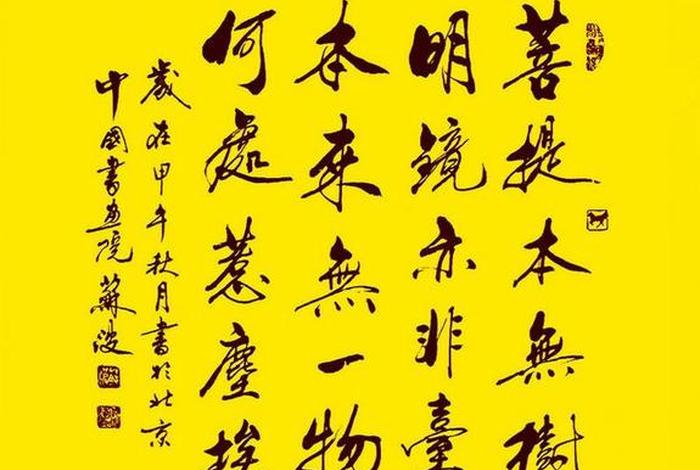 菩提本無樹
明鏡亦非臺
本来無一物
何處惹塵埃
歲在甲午秋月書於北京
中國書画院蘇波